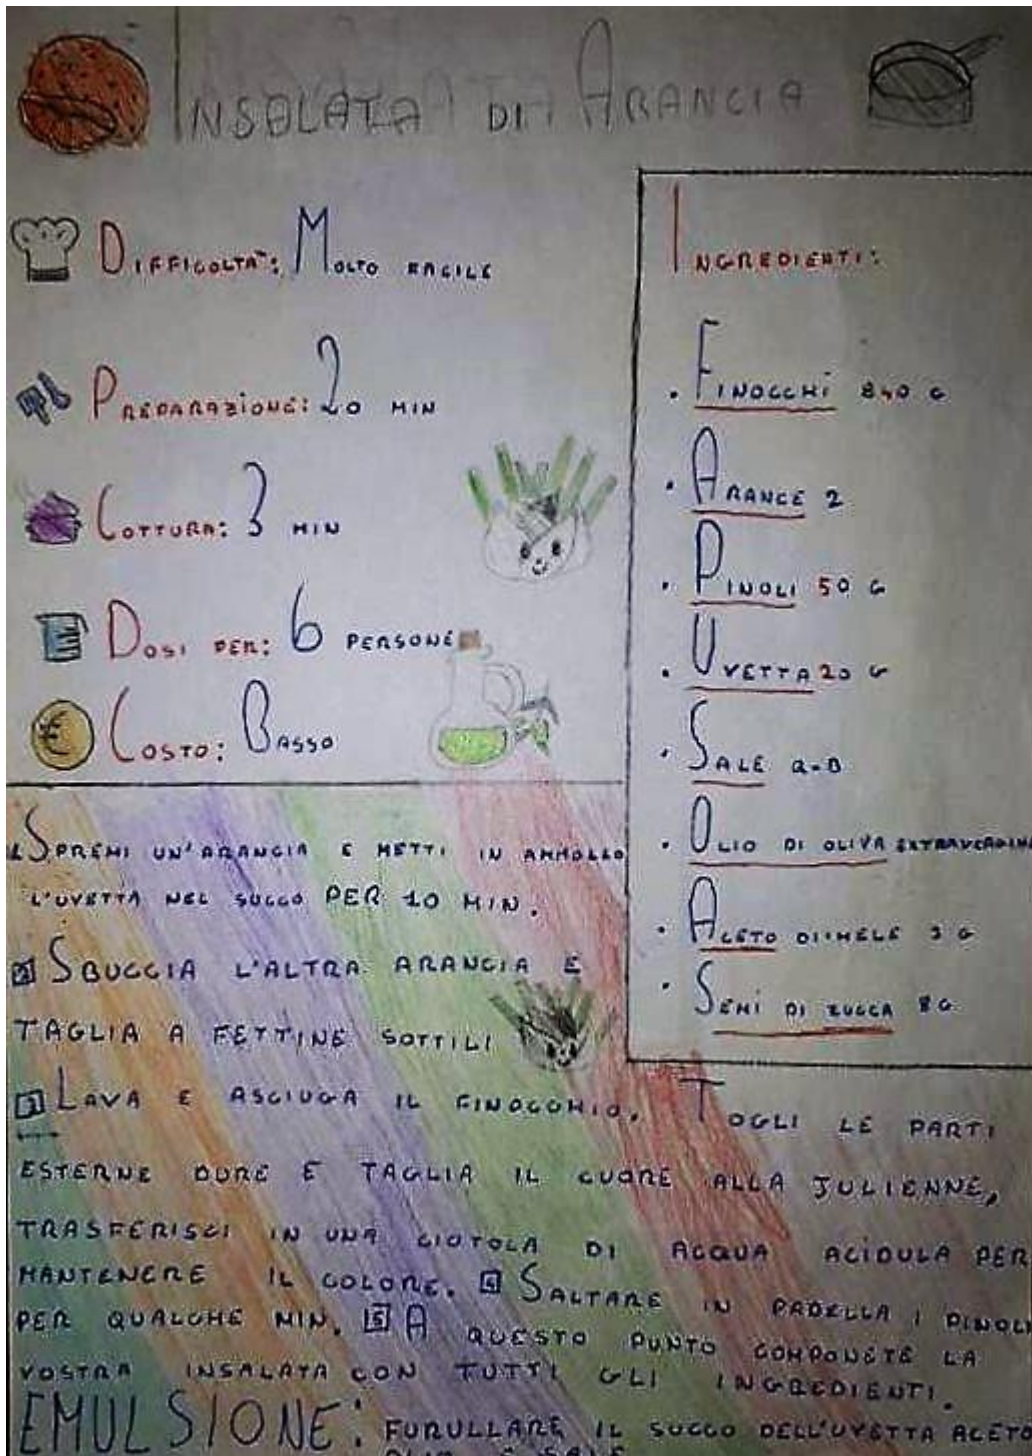 INSALATA DI ARANCIA
DIFFICOLTA': MOLTO FACILE
PREPARAZIONE: 20 MIN
COTTURA: 3 MIN
DOSI PER: 6 PERSONE
COSTO: BASSO
INGREDIENTI:
• FINOCCHI 840 G
• ARANCE 2
• PINOLI 50 G
• UVETTA 20 G
• SALE Q.B
• OLIO DI OLIVA EXTRAVERGINE
• ACETO DI MELE 3 G
• SEMI DI ZUCCA 8G
1 SPREMI UN'ARANCIA E METTI IN AMMOLLO
L'UVETTA NEL SUCCO PER 10 MIN.
2 SBUCCIA L'ALTRA ARANCIA E
TAGLIA A FETTINE SOTTILI
3 LAVA E ASCIUGA IL FINOCCHIO. TOGLI LE PARTI
ESTERNE DURE E TAGLIA IL CUORE ALLA JULIENNE,
TRASFERISCI IN UNA CIOTOLA DI ACQUA ACIDULA PER
MANTENERE IL COLORE. 4 SALTARE IN PADELLA I PINOLI
PER QUALCHE MIN. 5 A QUESTO PUNTO COMPONETE LA
VOSTRA INSALATA CON TUTTI GLI INGREDIENTI.
EMULSIONE: FURULLARE IL SUCCO DELL'UVETTA ACETO
OLIO E SALE